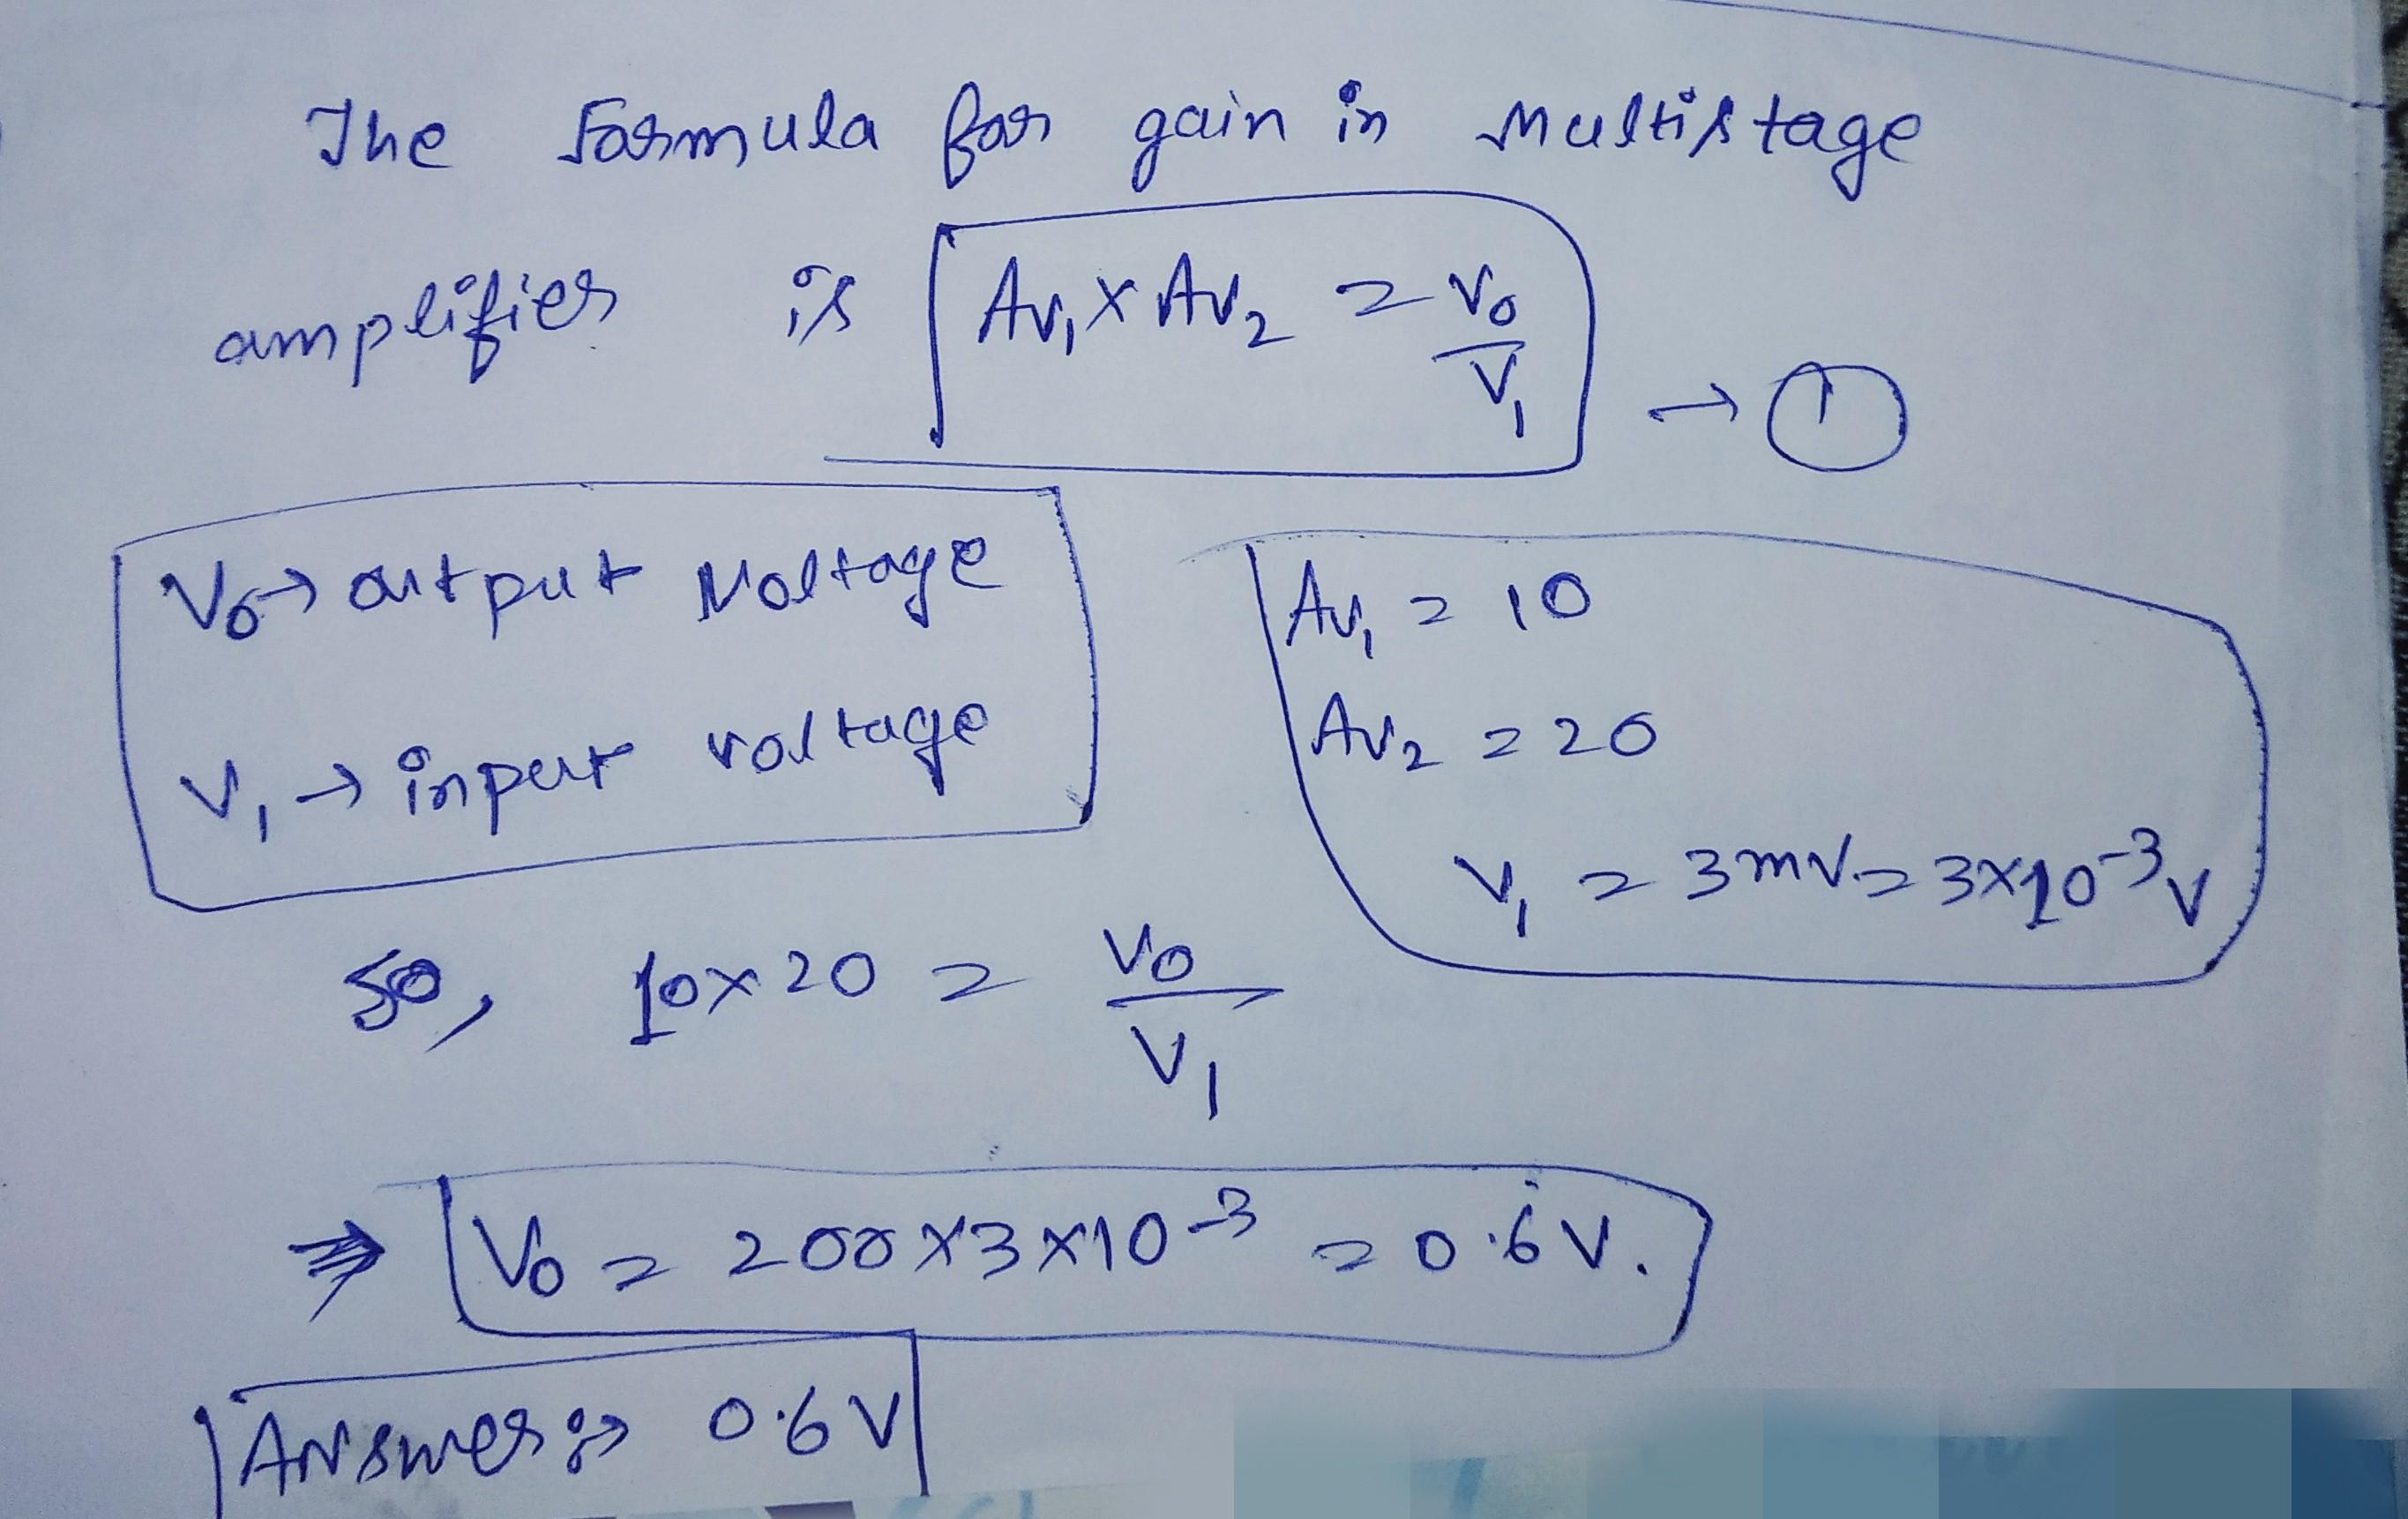 The Formula for gain in Multistage
amplifier is Av₁ × Av₂ = V₀/V₁ → ①
V₀ → output Voltage
V₁ → input voltage
Av₁ = 10
Av₂ = 20
V₁ = 3mV = 3×10⁻³V
So, 10×20 = V₀/V₁
⇒ V₀ = 200×3×10⁻³ = 0.6V.
Answer:→ 0.6V